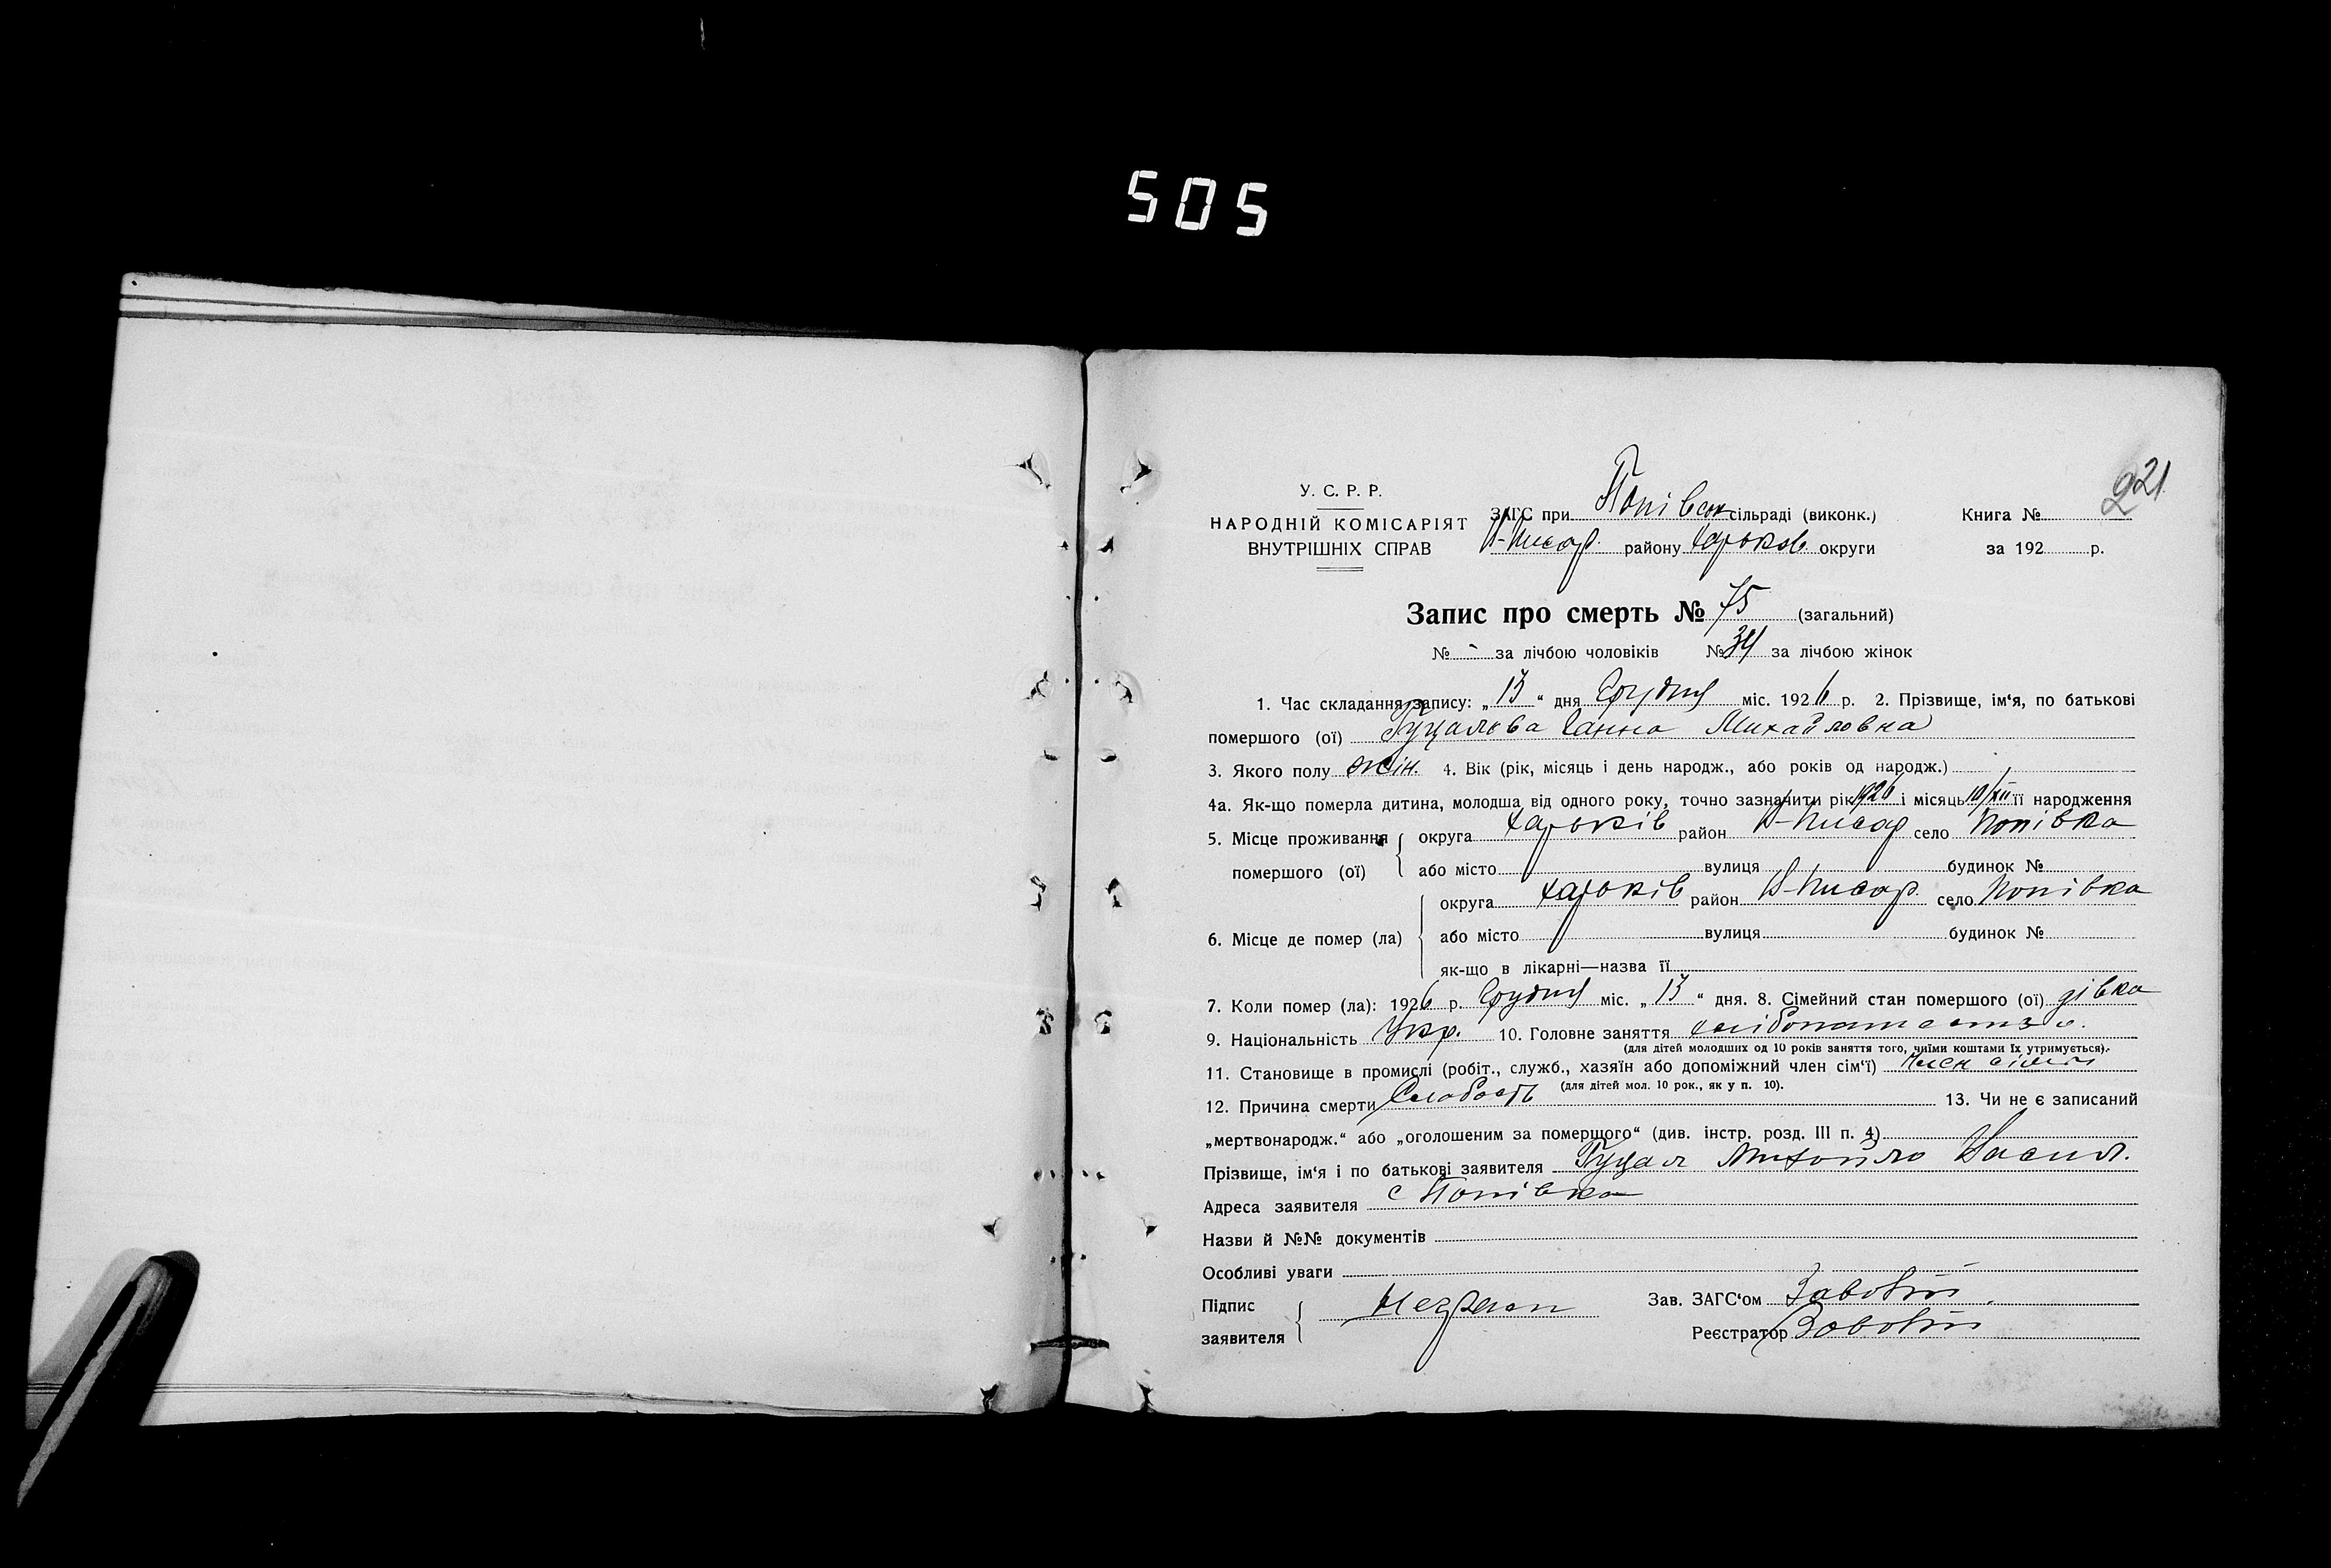 505
221
У. С. Р. Р.
НАРОДНІЙ КОМІСАРІЯТ
ВНУТРІШНІХ СПРАВ
ЗАГС при Попівськ сільраді (виконк.)
В-Писар. району Харьков. округи
Книга №
за 192 р.
Запис про смерть № 75 (загальний)
№ - за лічбою чоловіків № 34 за лічбою жінок
1. Час складання запису: „13“ дня Грудня міс. 1926 р. 2. Прізвище, ім‘я, по батькові
помершого (ої) Гуцалова Ганна Михайловна
3. Якого полу жін. 4. Вік (рік, місяць і день народж., або років од народж.)
4а. Як-що померла дитина, молодша від одного року, точно зазначити рік 1926 і місяць 10/XII її народження
5. Місце проживання помершого (ої) округа Харьків район В-Писар село Попівка
або місто вулиця будинок №
6. Місце де помер (ла) округа Харьків район В-Писар. село Попівка
або місто вулиця будинок №
як-що в лікарні—назва її
7. Коли помер (ла): 1926 р. Грудня міс. „13“ дня. 8. Сімейний стан помершого (ої) дівка
9. Національність Укр. 10. Головне заняття
(для дітей молодших од 10 років заняття того, чиїми коштами їх утримується).
11. Становище в промислі (робіт., служб., хазяїн або допоміжний член сім‘ї) Член сімьи
(для дітей мол. 10 рок., як у п. 10).
12. Причина смерти Слабость 13. Чи не є записаний
„мертвонародж.“ або „оголошеним за померщого“ (див. інстр. розд. III п. 4)
Прізвище, ім‘я і по батькові заявителя Гуцал Михойло Васил.
Адреса заявителя с Попівка
Назви й №№ документів
Особливі уваги
Підпис заявителя
Зав. ЗАГС‘ом
Реєстратор